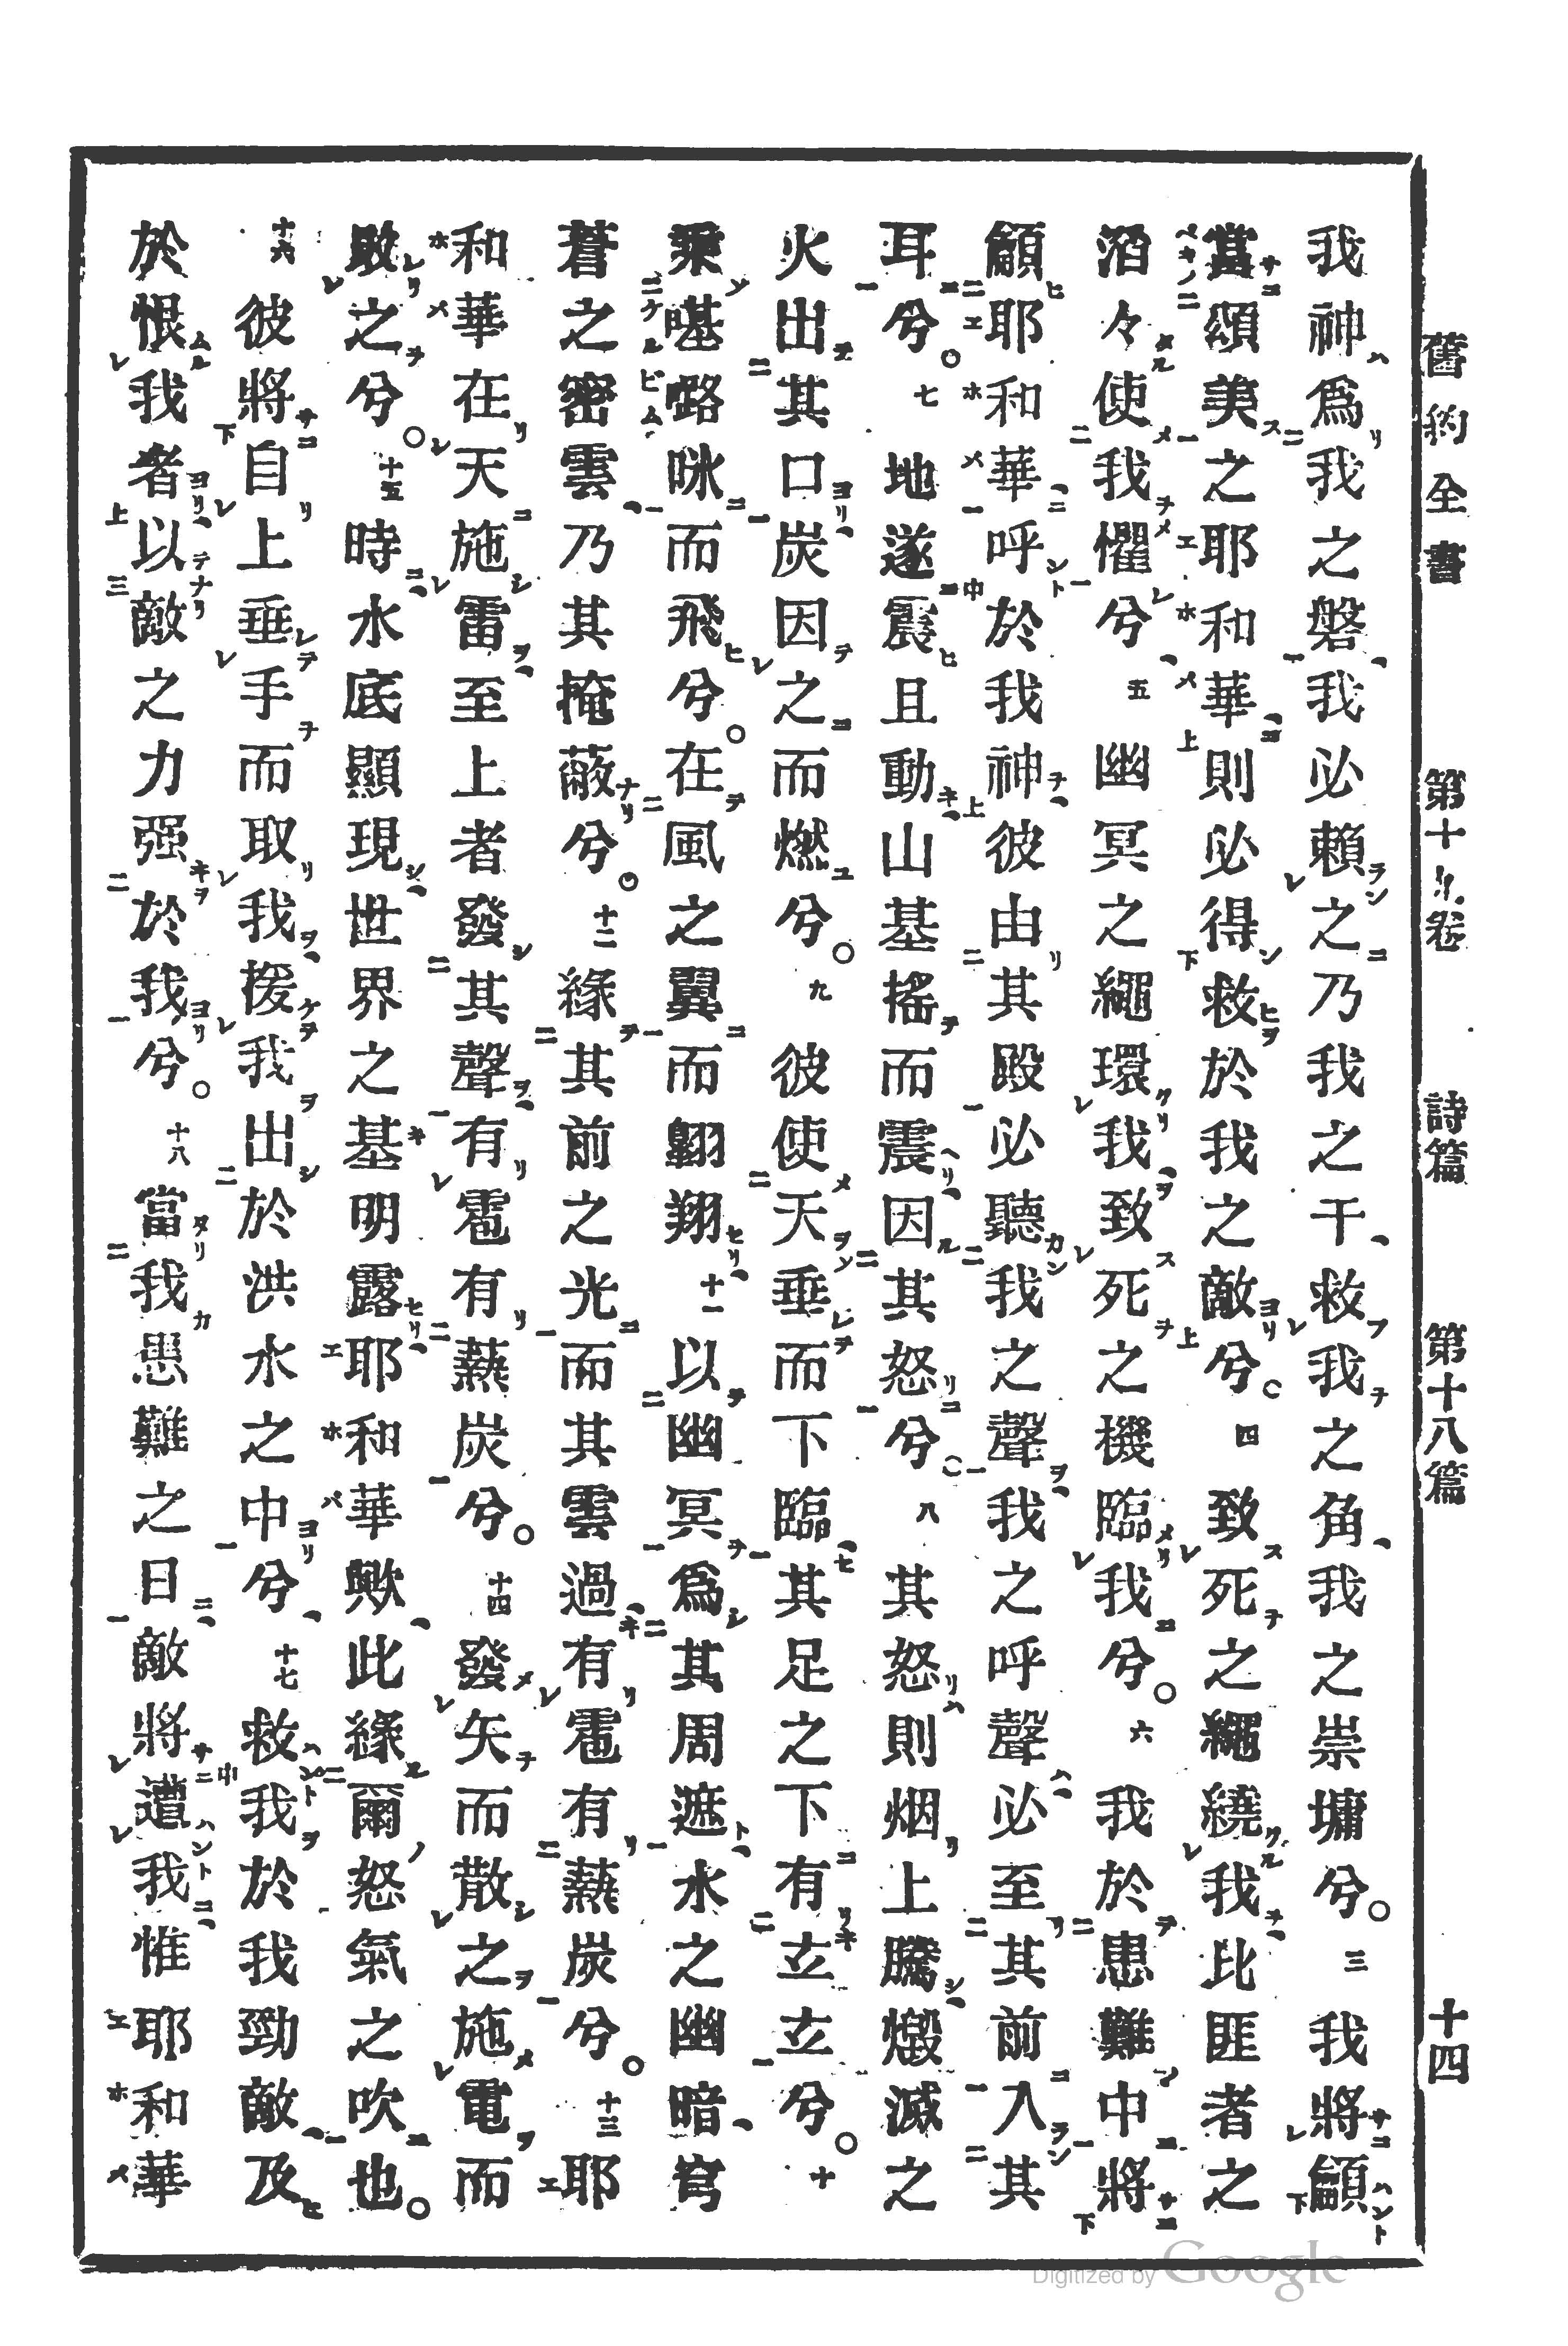 舊約全書 第十九卷 詩篇 第十八篇 十四
我神爲我之磐我必賴之乃我之干救我之角我之崇墉兮○三我將籲
當頌美之耶和華則必得救於我之敵兮○四致死之繩繞我比匪者之
滔々使我懼兮五幽冥之繩環我致死之機臨我兮○六我於患難中將
籲耶和華呼於我神彼由其殿必聽我之聲我之呼聲必至其前入其
耳兮○七地遂震且動山基搖而震因其怒兮○八其怒則烟上騰燬滅之
火出其口炭因之而燃兮○九彼使天垂而下臨其足之下有玄玄兮○十
乘𠼻嘧咏而飛兮○在風之翼而翺翔十一以幽冥爲其周遮水之幽暗穹
蒼之密雲乃其掩蔽兮○十二緣其前之光而其雲過有雹有爇炭兮○十三耶
和華在天施雷至上者發其聲有雹有爇炭兮○十四發矢而散之施電而
敗之兮○十五時水底顯現世界之基明露耶和華歟此緣爾怒氣之吹也○
十六彼將自上垂手而取我援我出於洪水之中兮十七救我於我勁敵及
於恨我者以敵之力强於我兮○十八當我患難之日敵將遭我惟耶和華
Digitized by Google